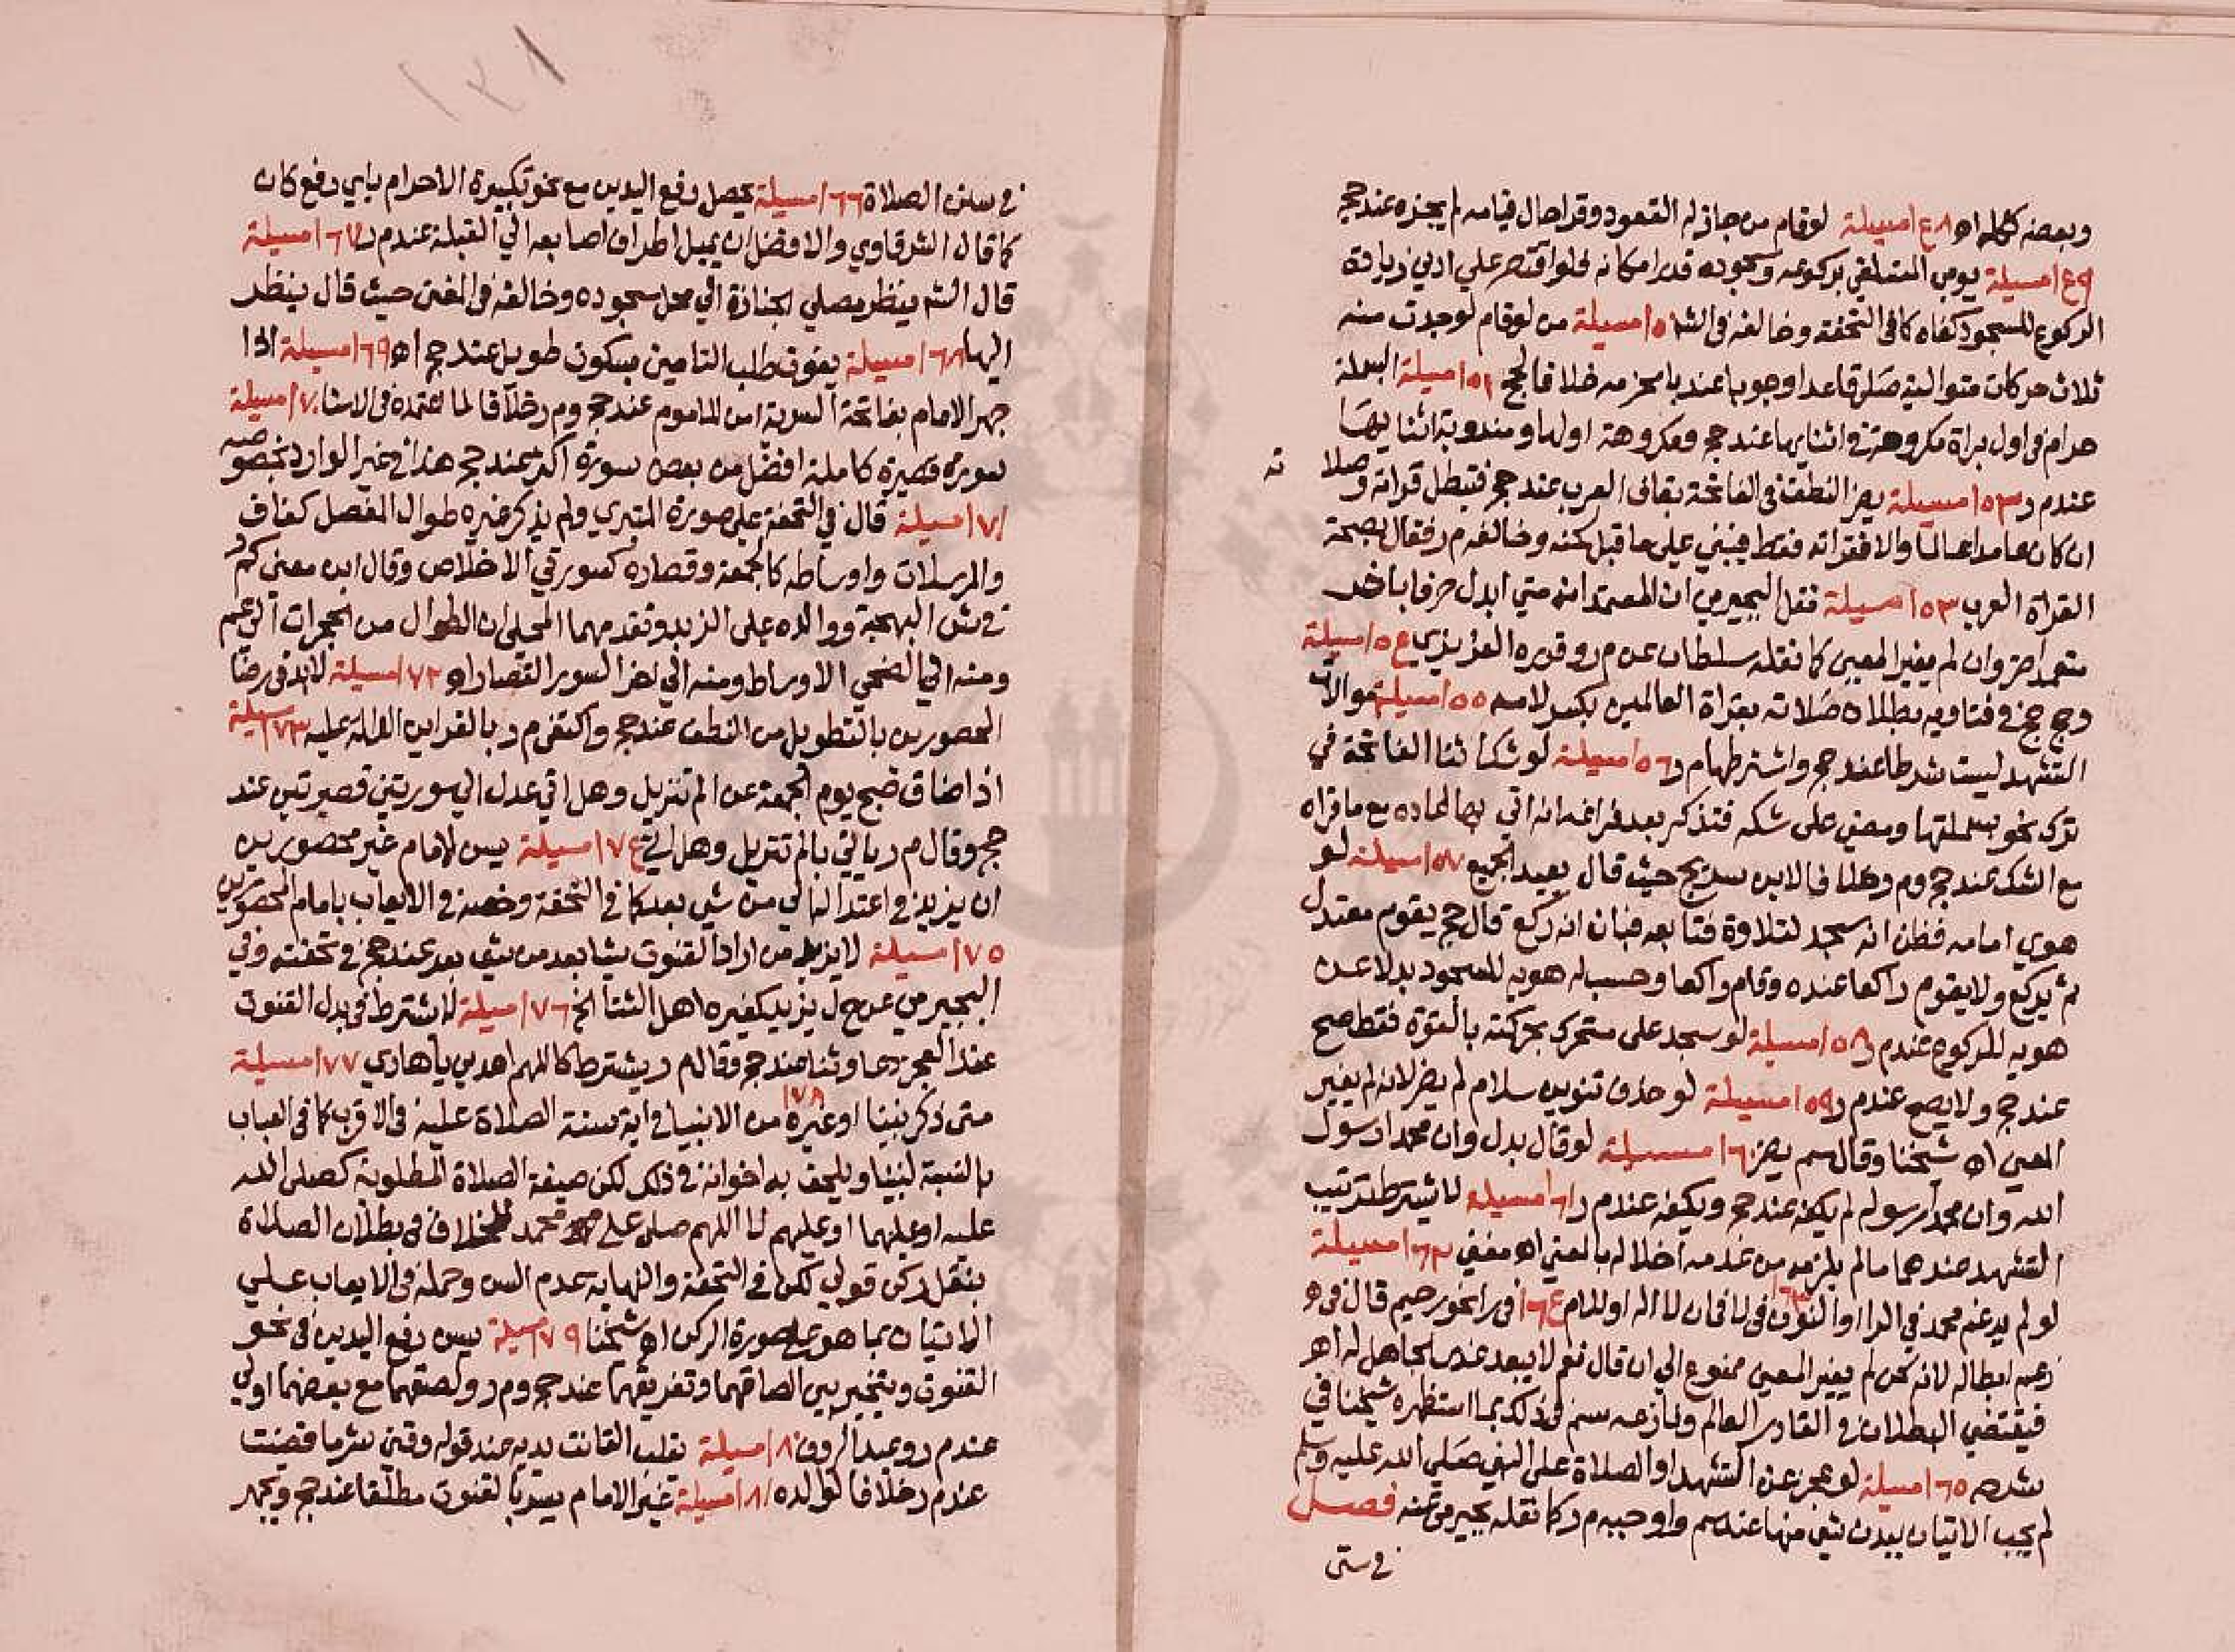 وبعضه ككله اه ١٤٨ مسيلة لو قام من جاز له القعود وقرا حال قيامه لم يجزه عند حج
١٤٩ مسيلة يومي المستلقي بركوعه وسجوده قدر امكانه فلو اقتصر علي ادني زيادة
الركوع للسجود كفاه كما في التحفة وخالفه في الشا ١٥٠ مسيلة من لو قام لوجدت منه
ثلاث حركات متوالية صلى قاعدا وجوبا عند بامخرمه خلافا لحج ١٥١ مسيلة البسملة
حرام في اول براة مكروهة في اثنايها عند حج ومكروهة اولها ومندوبة اثنايها
عند م ر ١٥٢ مسيلة يضر النطق في الفاتحة بقاف العرب عند حج فتبطل قراته وصلا ته
ان كان عامدا عالما والا فقراته فقط فيبني علي ما قبل لكنه وخالفه م ر فقال بصحة
القراة العرب ١٥٣ مسيلة نقل البجيرمي ان المعتمد انه متي ابدل حرفا باخر
متعمدا ضر وان لم يغير المعني كما نقله سلطان عن م ر وقرره العزيزي ١٥٤ مسيلة
رجح حج في فتاويه بطلان صلاته بقراة العالمين بكسر لامه ١٥٥ مسيلة موالات
التشهد ليست شرطا عند حج واشترطها م ر ١٥٦ مسيلة لو شك اثنا الفاتحة في
ترك نحو بسملتها ومضي على شكه فتذكر بعد فراغه انه اتي بها لم اعاده مع ما قراه
مع الشك عند حج وم ر خلافا لابن سريج حيث قال يعيد الجميع ١٥٧ مسيلة لو
هوي امامه فظن انه سجد لتلاوة فتابعه فبان انه ركع قال حج يقوم معتدل
ثم يركع ولا يقوم راكعا عنده وقام راكعا وحسب له هويه للسجود بدلا عن
هويه للركوع عند م ر ١٥٨ مسيلة لو سجد على متحرك بحركته بالقوة فقط صح
عند حج ولا يصح عند م ر ١٥٩ مسيلة لو حذف تنوين سلام لم يضر لانه لم يغير
المعني اه شيخنا وقال سم يضر ١٦٠ مسيلة لو قال بدل وان محمدا رسول
الله وان محمدا رسوله لم يكفه عند حج ويكفيه عند م ر ١٦١ مسيلة لا يشترط ترتيب
التشهد عندهما ما لم يلزم من عدمه اخلال بالمعني اه مغني ١٦٢ مسيلة
لو لم يدغم محمد في الرا او النون ١٦٣ في لا في ان لا اله او للام ١٦٤ في را نحو رحيم قال في
زعم ابطاله لانه لحن لم يغير المعني ممنوع الي ان قال نعم لا يبعد عذر الجاهل له اه
فيقتضي البطلان في القادر العالم ونازعه سم في ذلك بما استظهره شيخنا في
شرحه ١٦٥ مسيلة لو عجز عن التشهد او الصلاة على النبي صلي الله عليه وسلم
لم يجب الاتيان ببدل شي منها عند سم واوجبه م ر كما نقله بجيرمي عنه فصل
في سنن
في سنن الصلاة ١٦٦ مسيلة يحصل رفع اليدين مع نحو تكبيرة الاحرام باي رفع كان
كما قال الشرقاوي والافضل ان يميل اطراف اصابعه الي القبلة عند م ر ١٦٧ مسيلة
قال الشم ينظر مصلي الجنازة الي محل سجوده وخالفه في المغني حيث قال ينظر
اليها ١٦٨ مسيلة يفوت طلب التامين بسكوت طويل عند حج اه ١٦٩ مسيلة اذا
جهر الامام بفاتحة السرية امن الماموم عند حج وم ر خلافا لما اعتمده في الاسنا ١٧٠ مسيلة
سورة قصيرة كاملة افضل من بعض سورة اكثر عند حج هذا في غير الوارد بخصوصه
١٧١ مسيلة قال في التحفة علي صورة المتبري ولم يذكر غيره طوال المفصل كقاف
والمرسلات واوساطه كالجمعة وقصاره كسورتي الاخلاص وقال ابن معن كم ر
في ش البهجة ووالده علي الزبد وتقدمهما المحلي ان الطوال من الحجرات الي عم
ومنه الي الضحي الاوساط ومنه الي اخر السور القصار اه ١٧٢ مسيلة لا بد في رضا
المحصورين بالتطويل من النطق عند حج واكتفي م ر بالقراين الدالة عليه ١٧٣ مسيلة
اذا ضاق صبح يوم الجمعة عن الم تنزيل وهل اتي عدل الي سورتين قصيرتين عند
حج وقال م ر ياتي بالم تنزيل وهل اتي ١٧٤ مسيلة يسن لامام غير محصورين
ان يزيد في اعتداله الي من شي بعد كما في التحفة وخصه في الايعاب بامام المحصورين
١٧٥ مسيلة لا يزيد من اراد القنوت شيا بعد من شي بعد عند حج في تحفته وفي
البجيرمي عن ح ل يزيد كغيره اهل الثنا الخ ١٧٦ مسيلة لا يشترط في بدل القنوت
عند العجز دعا وثنا عند حج وقال م ر يشترطا كاللهم اهدني يا هادي ١٧٧ مسيلة
متى ذكر نبينا او غيره ١٧٨ من الانبيا في اية سنة الصلاة عليه في الاقرب كما في العباب
بالنسبة لنبينا ويلحق به اخوانه في ذلك لكن صيغة الصلاة المطلوبة كصلى الله
عليه او عليهما او عليهم لا اللهم صلي علي محمد للخلاف في بطلان الصلاة
بنقل ركن قولي لكن في التحفة والنهاية عدم السن وحمله في الايعاب علي
الاتيان بما هو علي صورة الركن اه شيخنا ١٧٩ مسيلة يسن رفع اليدين في نحو
القنوت ويتخير بين الصاقهما وتفريقهما عند حج وم ر ولصقهما مع بعضهما اولي
عند م ر وعبد الروف ١٨٠ مسيلة يقلب القانت يديه عند قوله وقني شر ما قضيت
عند م ر خلافا لوالده ١٨١ مسيلة غير الامام يسر بالقنوت مطلقا عند حج ويجهر